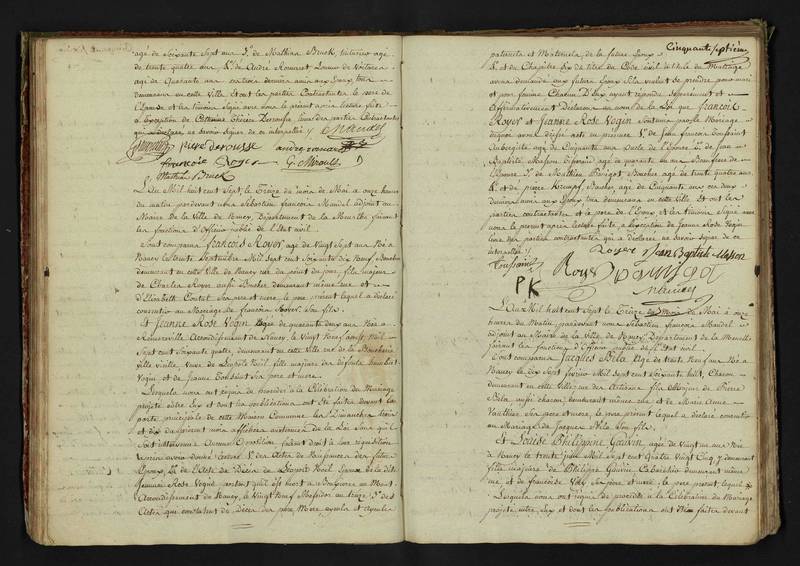 agé de Soixante Sept ans 3°. de Mathias Bruck, teinturier agé
de trente quatre ans 4°. de André Romaret
age de Quarante ans ces trois derniers amis aux Epoux tous
demeurans en cette Ville Et ont les parties Contractantes le pere de
l'Epouse et les témoins Signé avec nous le présent acte lecture faite
a l'exception de Catherine Derousse l'une des parties Contractantes
qui a déclaré ne savoir Signer de ce interpellée
Mandel
pierre derousse andre romaret
francois Royer G. Miroult
Mathias Bruck
L'An Mil huit cent Sept, le Treize du mois de Mai a onze heures
du matin pardevant nous Sebastien francois Mandel adjoint au
Maire de la Ville de Nancy, Département de la Meurthe faisant
les fonctions d'Officier public de l'Etat civil.
Sont comparus francois Royer, age de Vingt Sept ans Né a
Nancy le trente Septembre Mil Sept cent Soixante dix Neuf, Boucher
demeurant en cette Ville rue du point du jour, fils majeur
de Charles Royer aussi Boucher demeurant même rue et
d'Elizabeth Contet Ses pere et mere, le pere présent lequel a déclaré
consentir au Mariage de francois Royer Son fils.
Et Jeanne Rose Vogin agée de quarante deux ans Née a
Arrondissement de Nancy, le Vingt Neuf aoust Mil
Sept cent Soixante quatre, demeurant en cette Ville rue de la Boucherie
Ville vieille, Veuve de Léopold Noël, fille majeure des défunts humbert
Vogin et de Jeanne Toussaint Ses pere et mere.
Lesquels nous ont requis de procéder a la Célébration du Mariage
projetté entre Eux et dont les publications ont été faites devant la
porte principale de cette Maison Commune les Dimanches trois
et dix du présent mois affichées au desir de la Loi Sans qu'il
Soit intervenu Aucune Opposition faisant droit à leur réquisition
après avoir donné lecture 1°. des Actes de Naissances des futurs
Epoux, 2°. de l'Acte de Décès de Léopold Noël Epoux de la dite
Jeanne Rose Vogin portant qu'il est mort a
Arrondissement de Nancy, le Vingt Neuf Messidor an treize 3°. des
Actes qui constatent de Décès des pere Mere ayeuls et ayeules
Cinquante Septième
paternels et Maternels, de la future Epouse
4°. et du Chapitre Six du titre du Code civil intitulé du Mariage
avons demandé aux futurs Epoux S'ils veulent se prendre pour mari
et pour femme Chacun D'Eux ayant répondu Séparément et
affirmativement Déclarons au nom de la Loi que francois
Royer et Jeanne Rose Vogin Sont unis par le Mariage
dequoi avons dressé acte en présence 1°. de Jean francois toussaint
Aubergiste agé de Cinquante ans Oncle de l'Epouse 2°. de Jean
Baptiste Masson agé de quarante un ans Beaufrere de
l'Epouse 3°. de Mathieu Boucher agé de trente quatre ans
4°. et de pierre Krempf, Boucher, agé de Cinquante ans ces deux
derniers amis aux Epoux tous demeurans en cette Ville Et ont les
parties contractantes et le pere de l'Epoux et les témoins Signé avec
nous le présent après lecture faite, a l'exception de Jeanne Rose Vogin
l'une des parties contractantes qui a déclaré ne savoir Signer de ce
interpellée
Royer Jean Baptiste Masson
Toussaint
Royer
PK
Mandel
L'An Mil huit cent Sept le Treize du Mois de Mai à onze
heures du Matin, pardevant nous Sébastien francois Mandel
adjoint au Maire de la Ville de Nancy Département de la Meurthe
faisant les fonctions d'Officier public de l'Etat civil.
Sont comparus Jacques Bila Agé de trente Neuf ans Né a
Nancy le dix Sept fevrier Mil Sept cent Soixante huit, Maçon
demeurant en cette Ville, rue des Artisans fils Majeur de Pierre
Bila aussi maçon, demeurant même rue et de Marie Anne
Vauthier Ses pere et mere, le pere présent lequel a déclaré consentir
au Mariage de Jacques Bila Son fils.
Et Louise Philippine Gauvin, agée de Vingt un ans Née
a Nancy le trente Juin Mil Sept cent Quatre Vingt Cinq y demeurant
fille majeure de Philippe Gauvin Cabaretier demeurant même
rue, et de francoise Ses pere et mere, le pere présent, lequel
Lesquels nous ont requis de procéder a la Célébration du Mariage
projetté entre Eux et dont les publications ont été faites devant